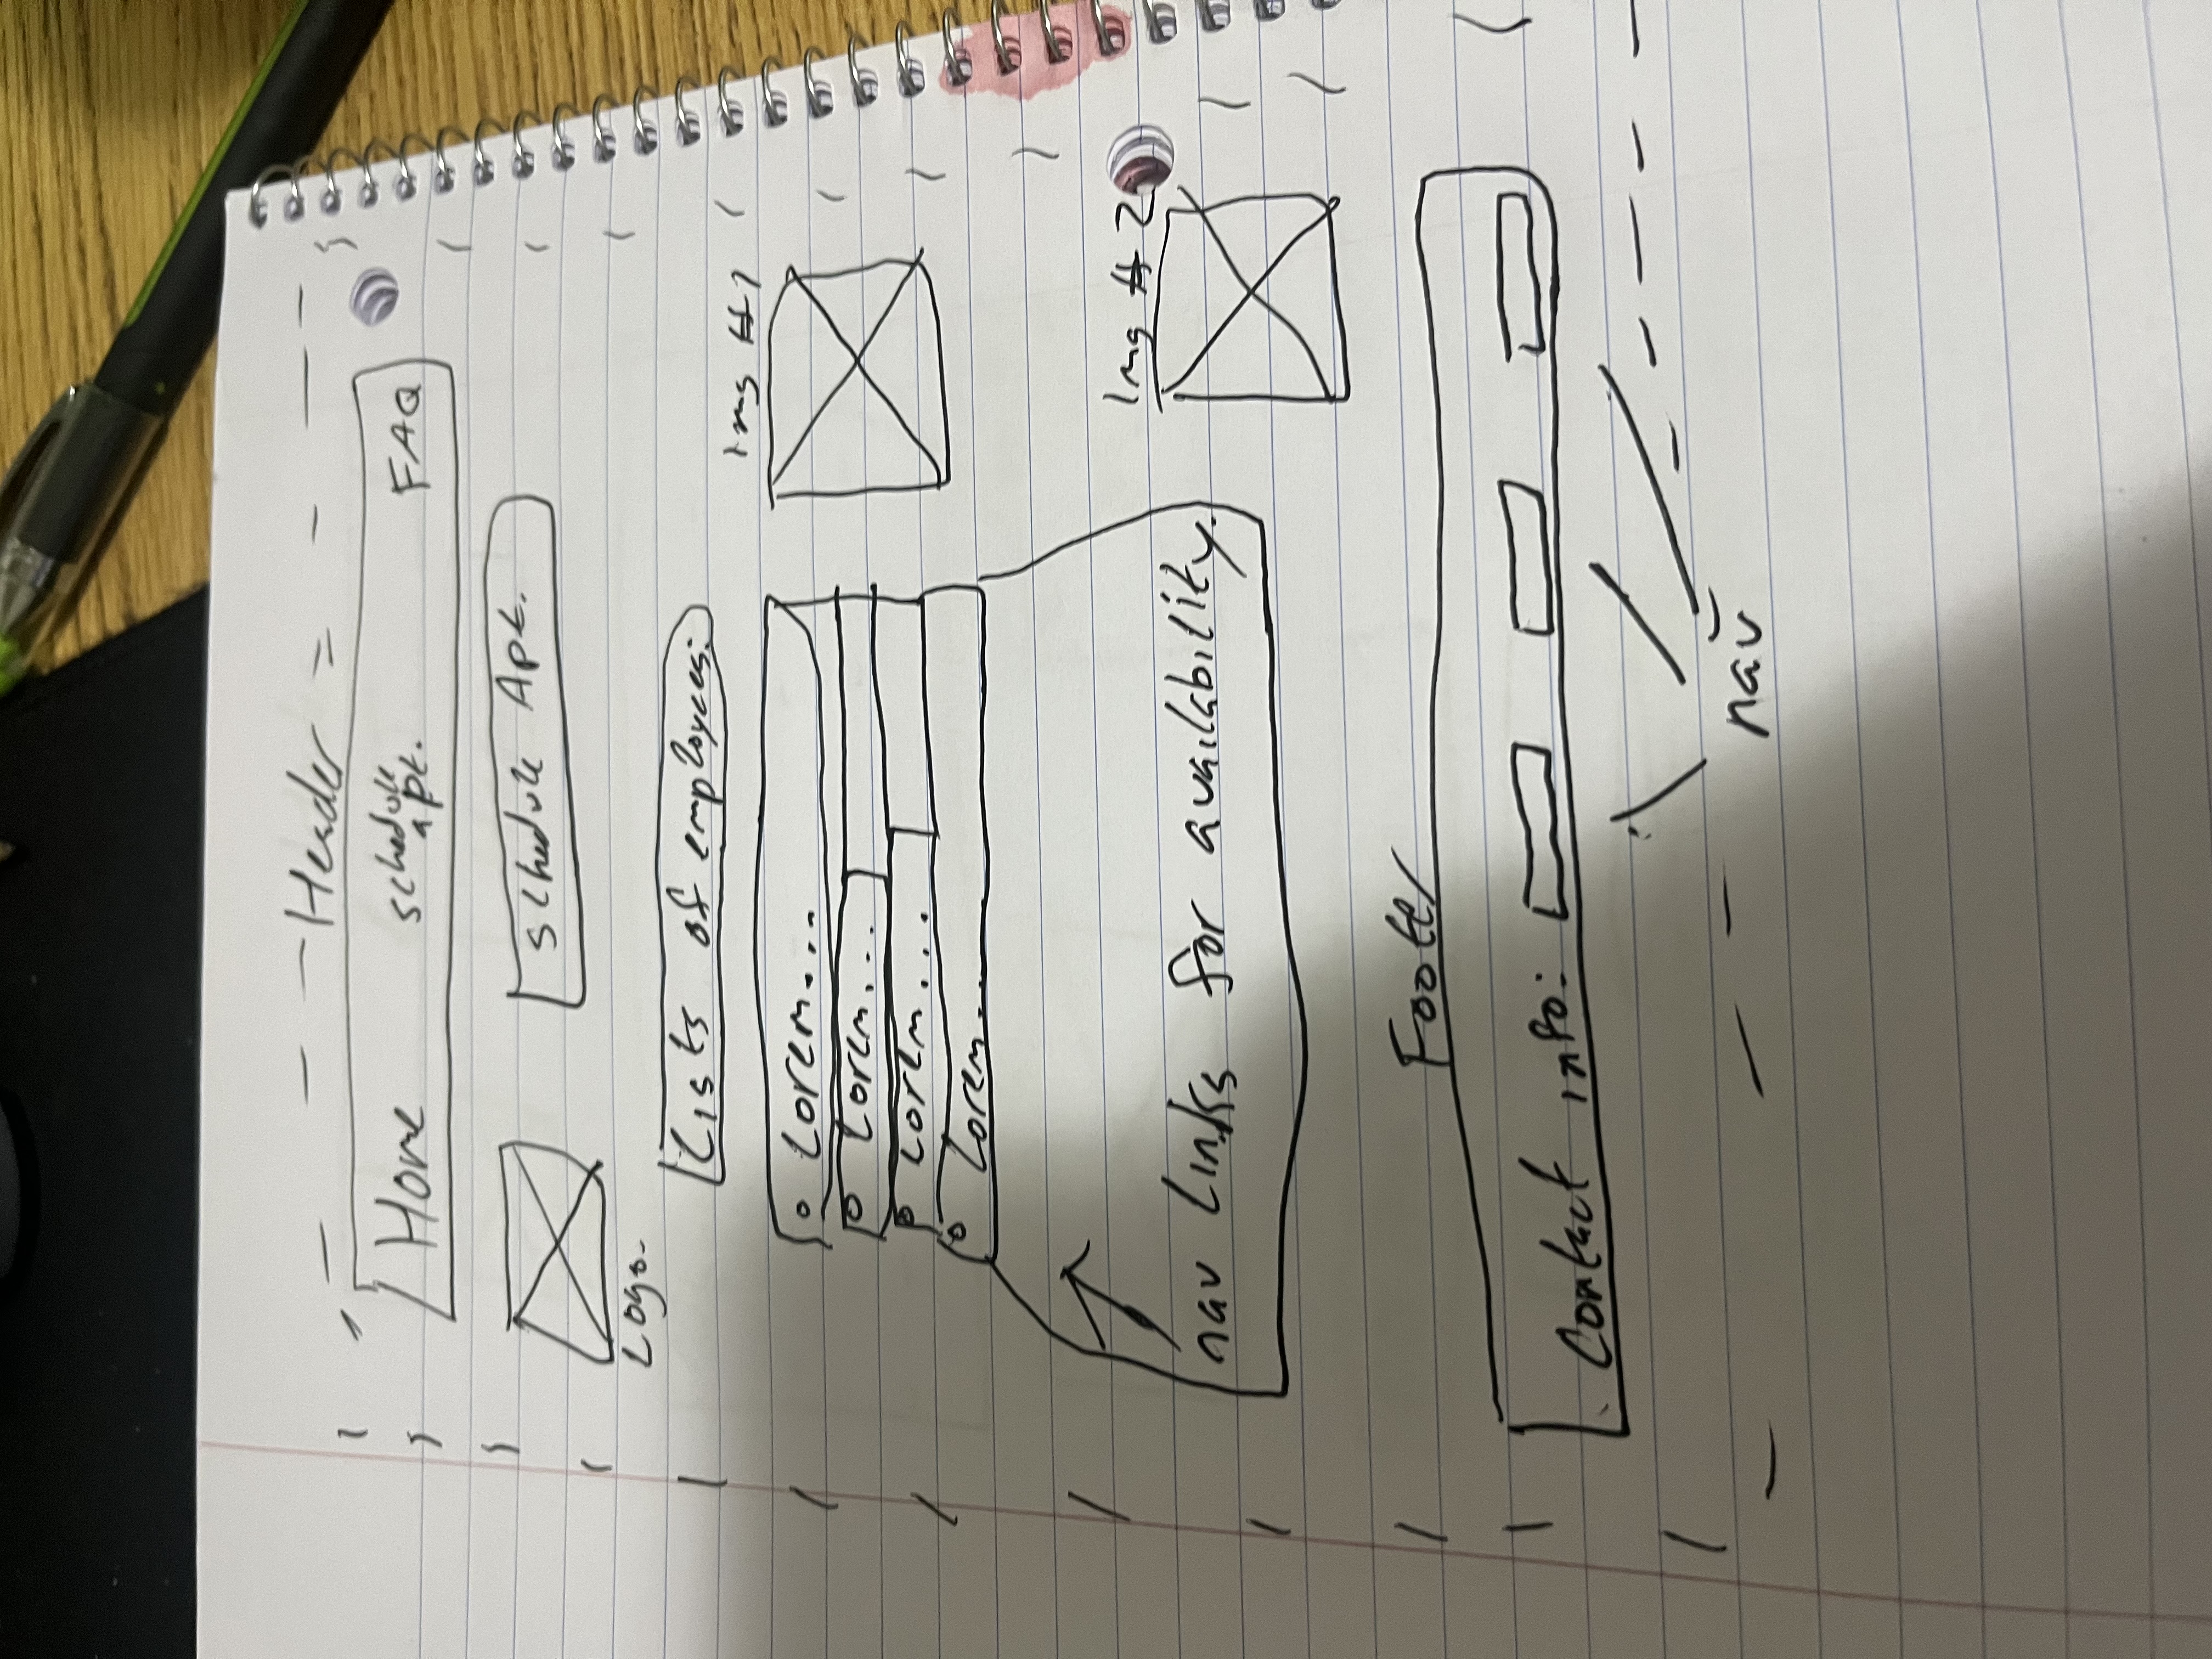 Header
Home schedule apt. FAQ
schedule Apt.
Logo.
Lists of employees:
Img #1
Lorem...
Lorem...
Lorem...
Lorem...
Img #2
nav links for availability.
Footer
Contact info:
nav